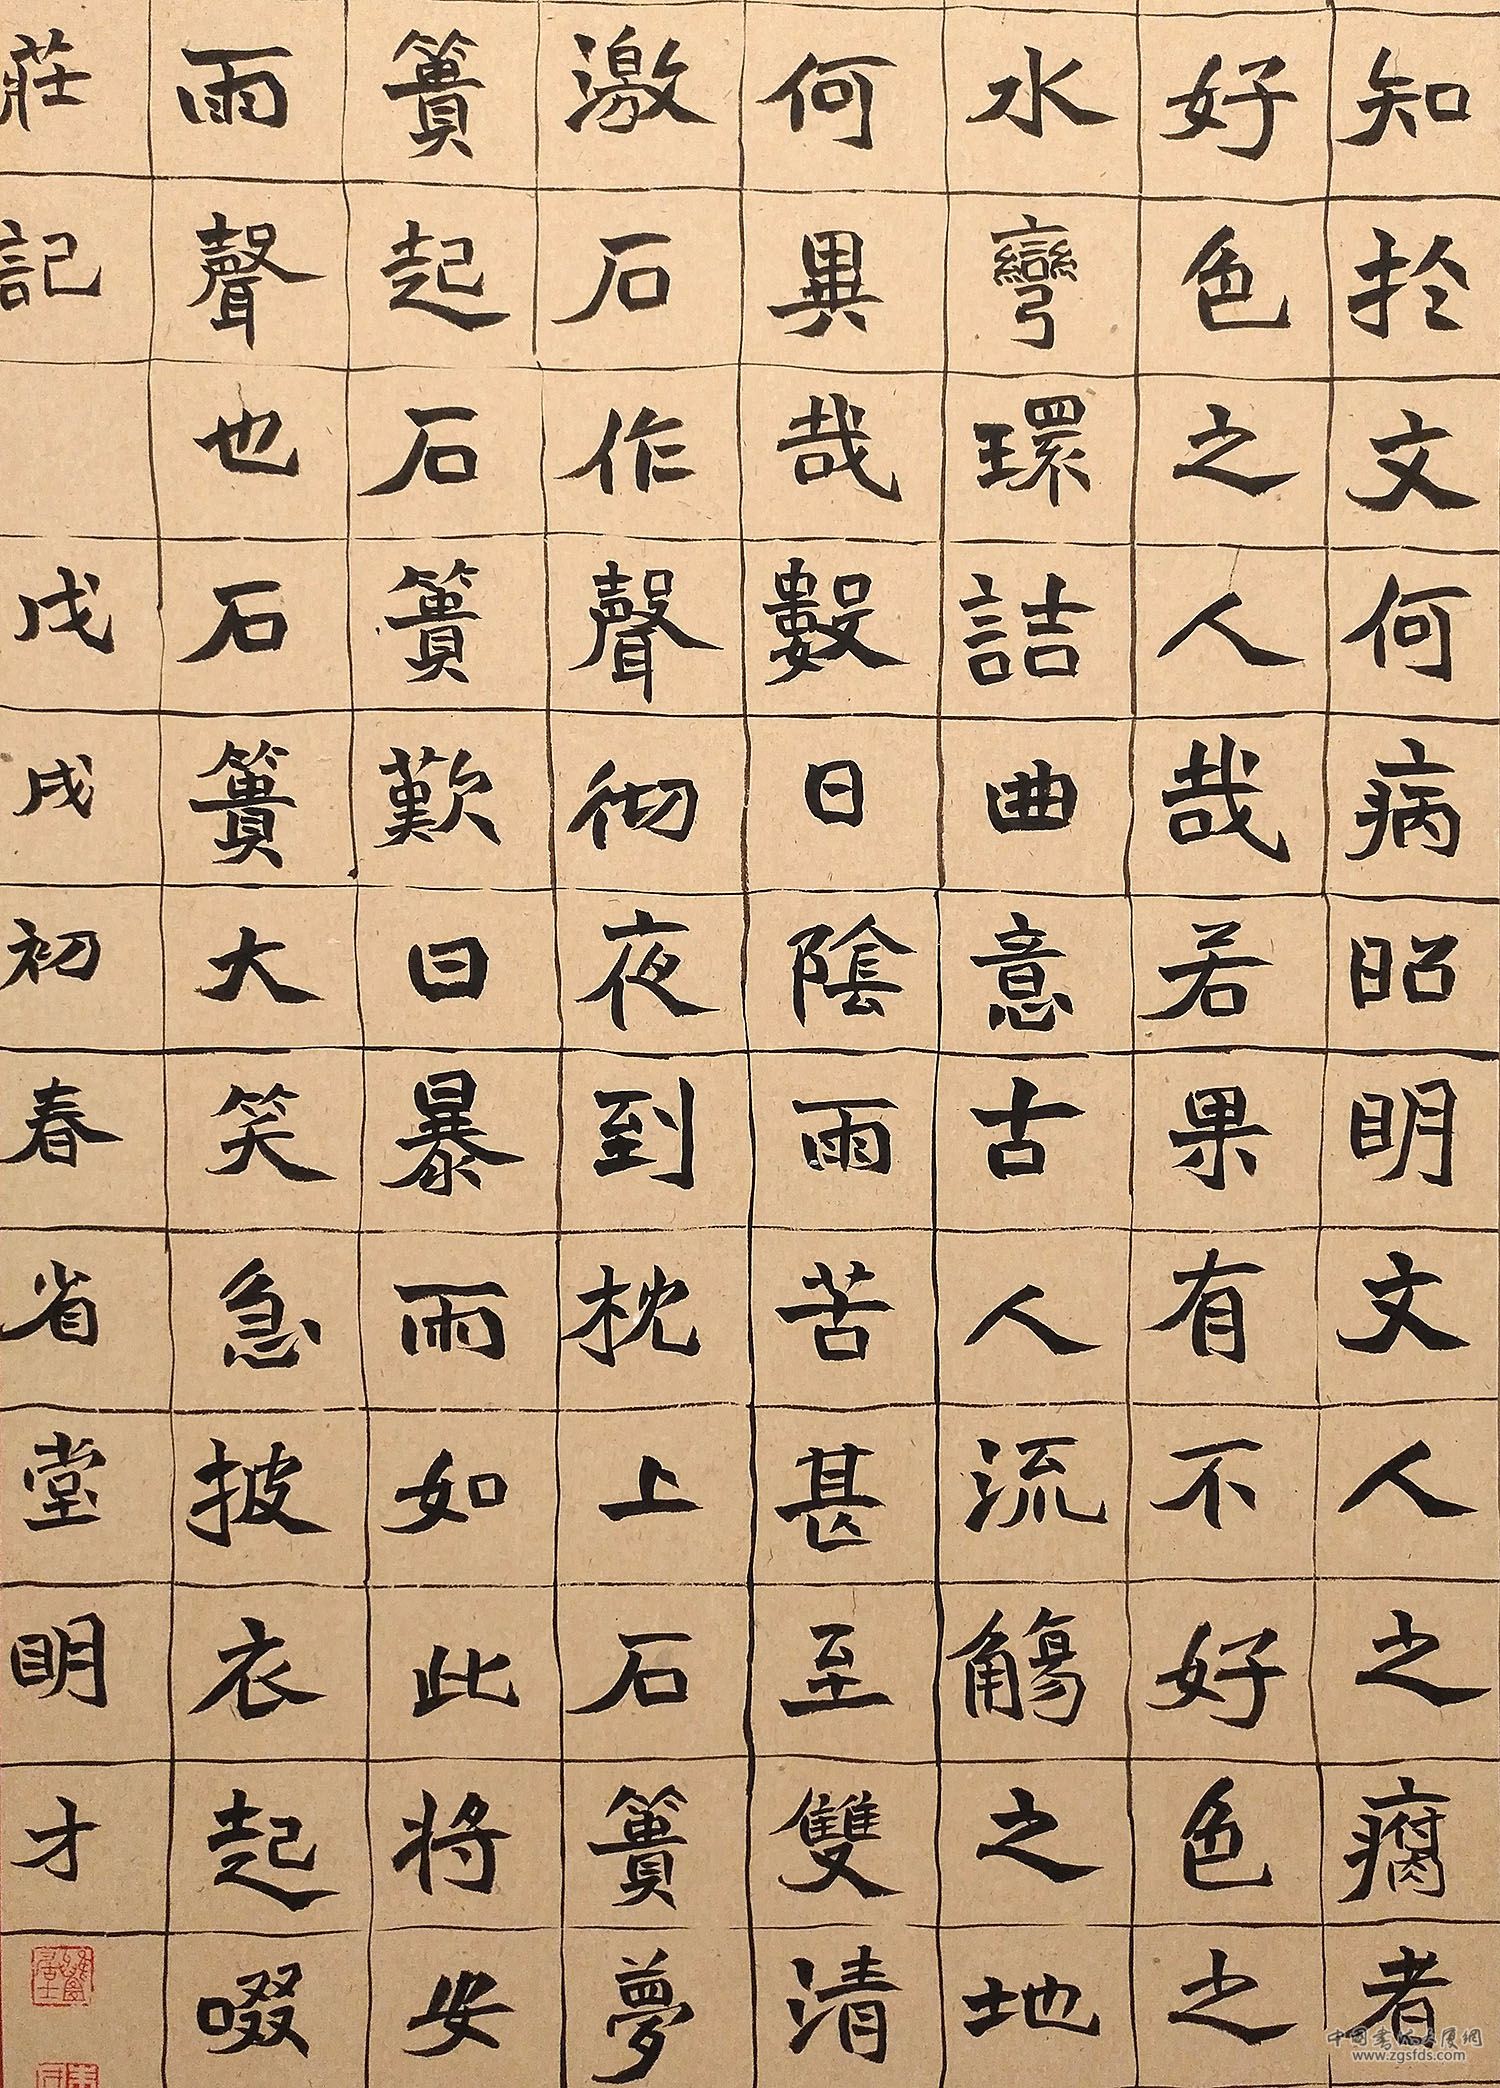 知扵文何病昭明文人之腐者
好色之人哉若果有不好色之
水彎環詰曲意古人流觴之地
何異哉數日陰雨苦甚至雙清
激石作聲彻夜到枕上石簣夢
簣起石簣歎曰暴雨如此将安
雨聲也石簣大笑急披衣起啜
莊記 戊戌初春省堂明才
中国书法大厦網
www.zgsfds.com